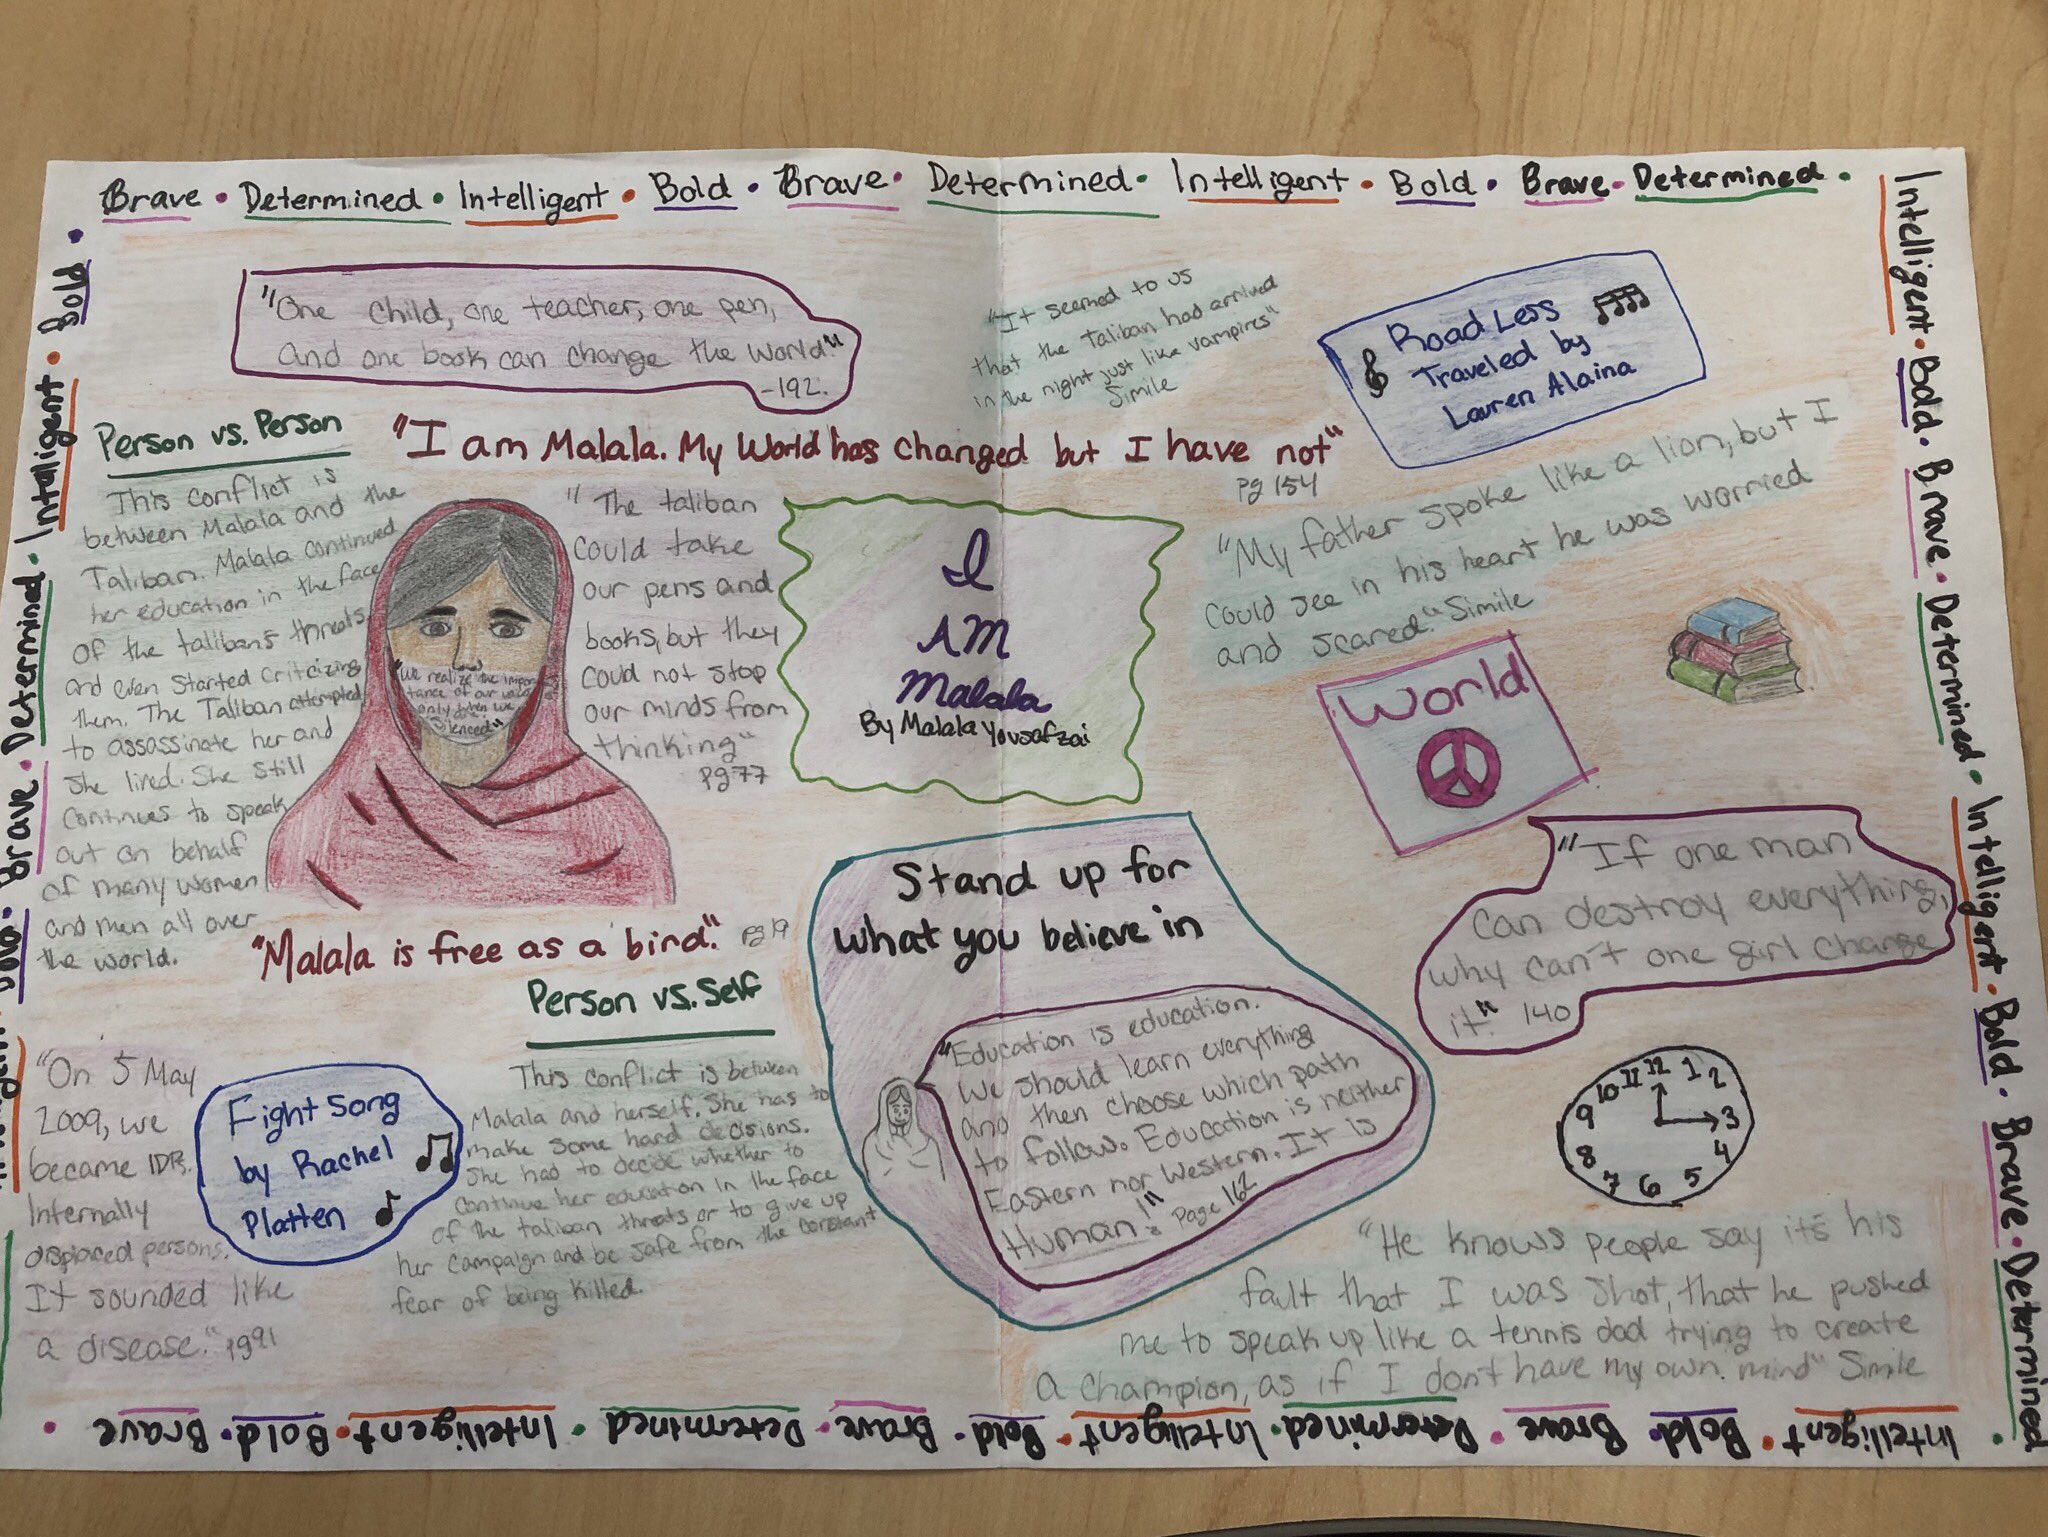 Brave • Determined • Intelligent • Bold • Brave • Determined • Intelligent • Bold • Brave • Determined •
"One child, one teacher, one pen,
and one book can change the world."
-192.
"It seemed to us
that the Taliban had arrived
in the night just like vampires"
Simile
Road Less
Traveled by
Lauren Alaina
"I am Malala. My World has changed but I have not"
pg 154
Person vs. Person
This conflict is
between Malala and the
Taliban. Malala continued
her education in the face
of the taliban's threats
and even started criticizing
them. The Taliban attempted
to assassinate her and
she lived. She still
continues to speak
out on behalf
of many women
and men all over
the world.
"We realize the impor
tance of our
only when we
silenced"
"The taliban
could take
our pens and
books, but they
could not stop
our minds from
thinking"
pg 77
I
AM
Malala
By Malala Yousafzai
"My father spoke like a lion, but I
could see in his heart he was worried
and scared." Simile
World
"If one man
can destroy everything,
why can't one girl change
it" 140
"Malala is free as a bird." pg 19
Stand up for
what you believe in
"Education is education.
We should learn everything
and then choose which path
to follow. Education is neither
Eastern nor Western. It is
Human!" Page 162
Person vs. Self
This conflict is between
Malala and herself. She has to
make some hard decisions.
She had to decide whether to
continue her education in the face
of the taliban threats or to give up
her campaign and be safe from the constant
fear of being killed.
"On 5 May
2009, we
became IDPs.
Internally
displaced persons.
It sounded like
a disease."
Fight Song
by Rachel
Platten
12 1 2 3 4 5 6 7 8 9 10 11
"He knows people say it's his
fault that I was shot, that he pushed
me to speak up like a tennis dad trying to create
a champion, as if I don't have my own mind" Simile
Intelligent • Bold • Brave • Determined • Intelligent • Bold • Brave • Determined •
Intelligent • Bold • Brave • Determined • Intelligent • Bold • Brave • Determined • Intelligent • Bold • Brave •
Brave • Determined • Intelligent • Bold •